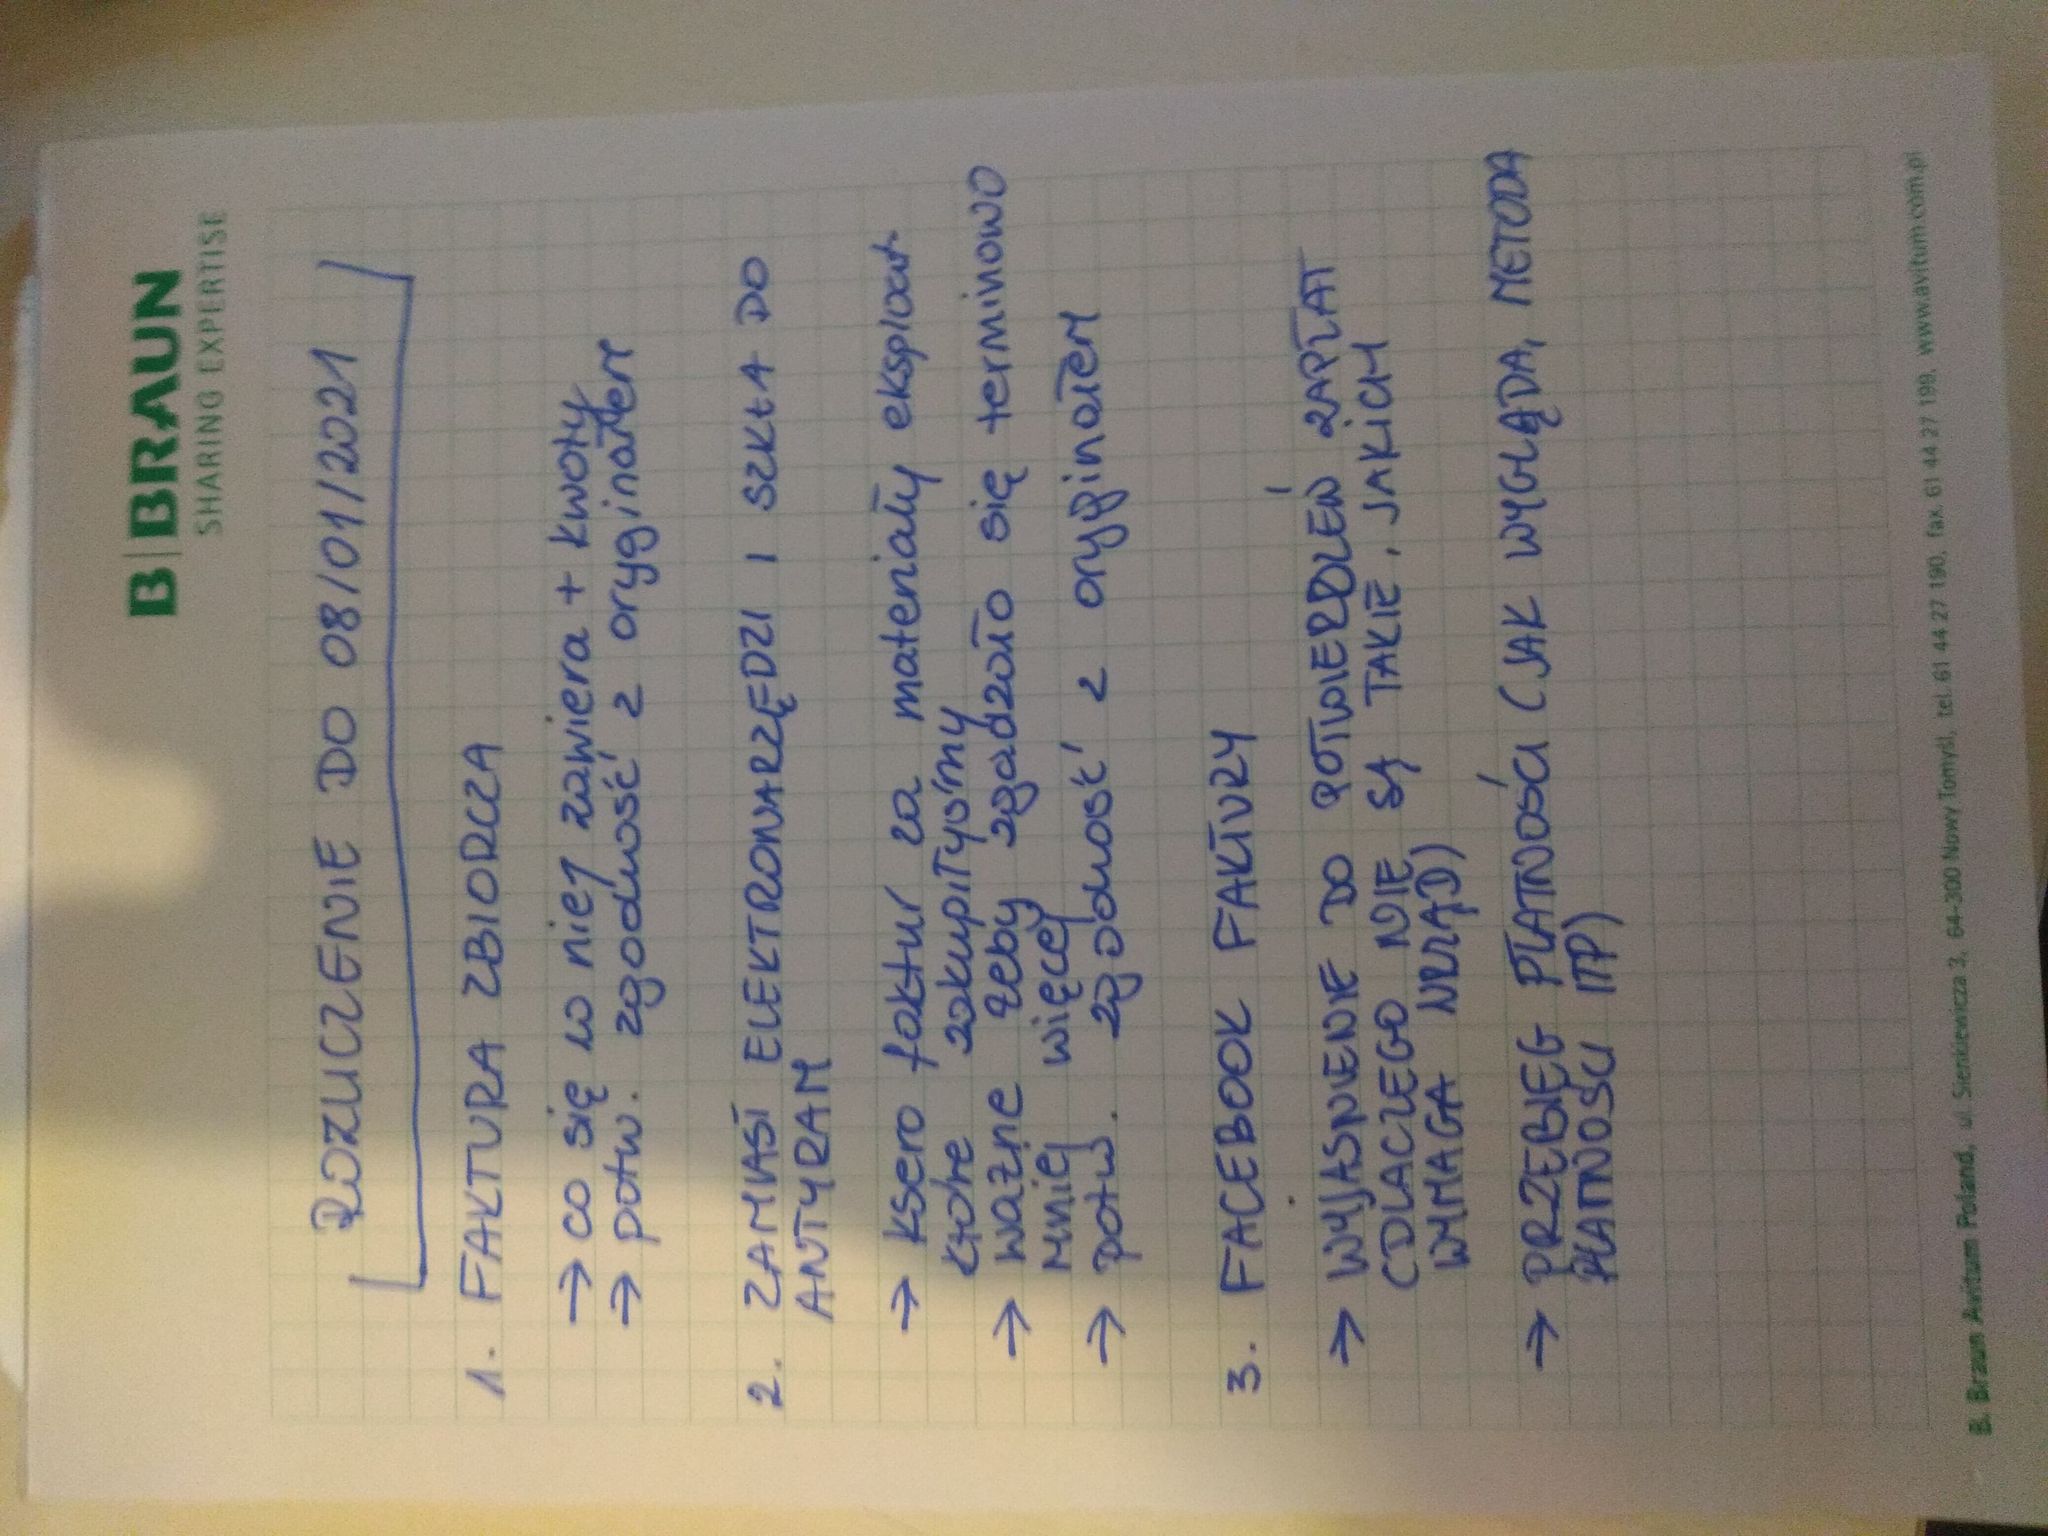 B|BRAUN
SHARING EXPERTISE
ROZLICZENIE DO 08/01/2021
1. FAKTURA ZBIORCZA
→ co się w niej zawiera + kwoty
→ potw. zgodność z oryginałem
2. ZAMIAST ELEKTRONARZĘDZI I SZKŁA DO
ANTYRAM
→ ksero faktur za materiały eksploat.
które zakupiłyśmy
→ ważne żeby zgadzało się terminowo
mniej więcej
→ potw. zgodność z oryginałem
3. FACEBOOK FAKTURY
→ WYJAŚNIENIE DO POTWIERDZEŃ ZAPŁAT
(DLACZEGO NIE SĄ TAKIE, JAKICH
WYMAGA URZĄD)
→ PRZEBIEG PŁATNOŚCI (JAK WYGLĄDA, METODA
PŁATNOŚCI ITP)
B. Braun Avitum Poland, ul. Sienkiewicza 3, 64-300 Nowy Tomyśl, tel. 61 44 27 190, fax 61 44 27 199, www.avitum.com.pl